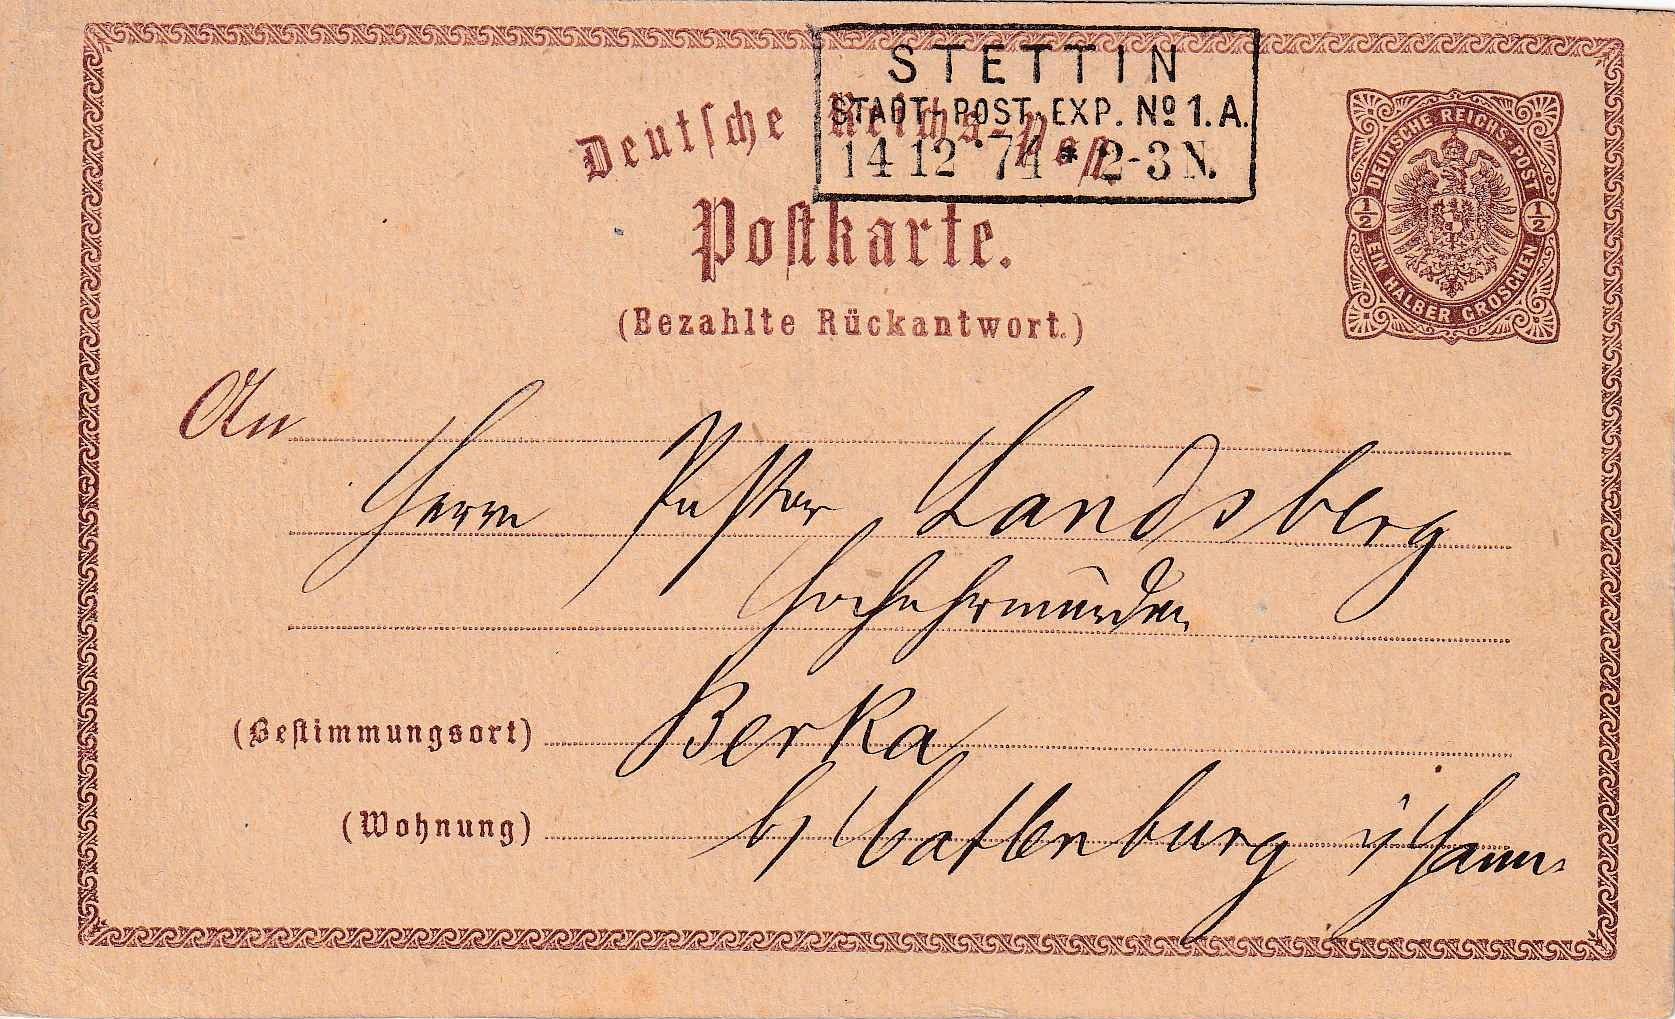 STETTIN
STADT-POST-EXP. No 1. A.
14 12 74 * 2-3 N.
Deutsche Reichs-Post
Postkarte.
(Bezahlte Rückantwort.)
DEUTSCHE REICHS-POST
1/2 1/2
EIN HALBER GROSCHEN
An
Herrn Pastor Landsberg
Hochehrwürden
(Bestimmungsort) Berka
(Wohnung) b/ Catlenburg i/ Hann.